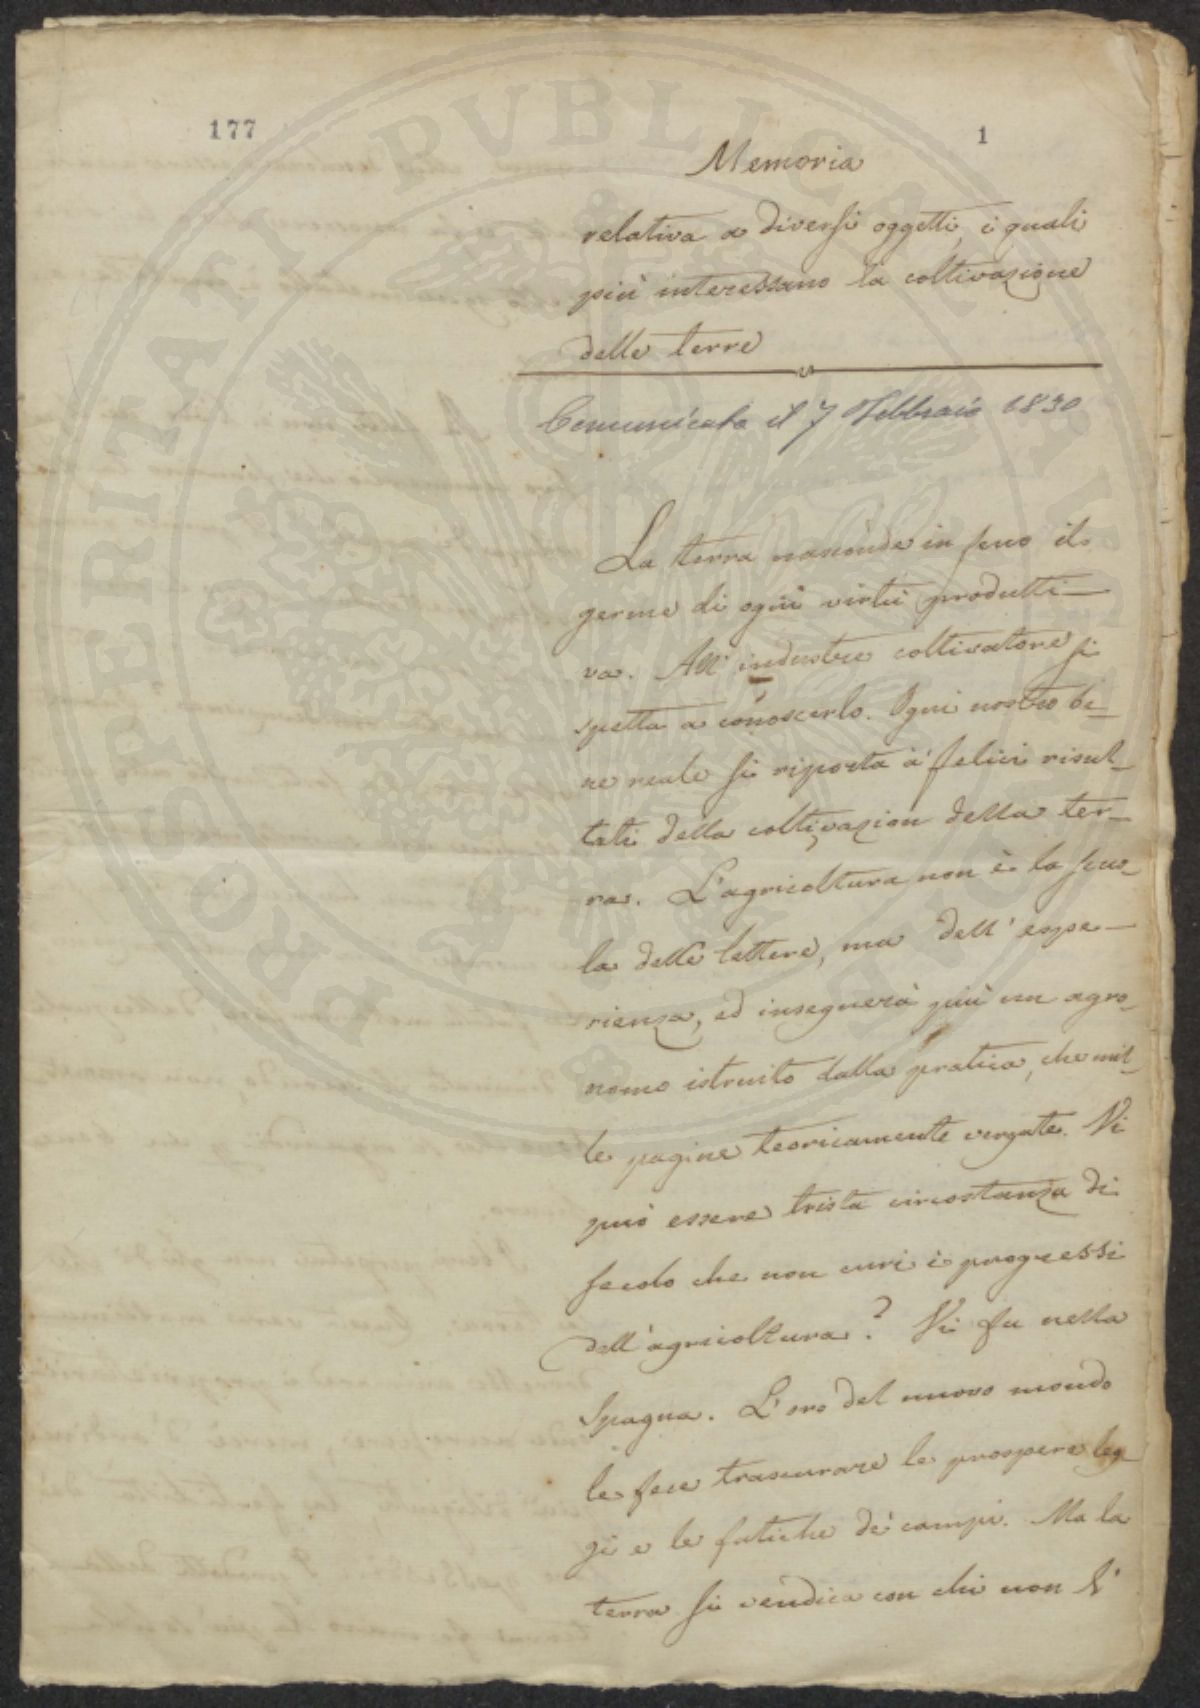 177
1
Memoria
relativa a diversi oggetti, i quali
più interessano la coltivazione
delle terre
Comunicata il 7 Febbraio 1830
La terra nasconde in seno il
germe di ogni virtù produtti-
va. All' industre coltivatore si
spetta a conoscerlo. Ogni nostro be-
ne reale si riporta a' felici risul-
tati della coltivazion della ter-
ra. L'agricoltura non è la scuo-
la delle lettere, ma dell' espe-
rienza, ed insegnerà più un agro-
nomo istruito dalla pratica, che mil-
le pagine teoricamente vergate. Vi
può essere trista circostanza di
secolo che non curi i progressi
dell'agricoltura? Vi fu nella
Spagna. L'oro del nuovo mondo
le fece trascurare le prospere leg-
gi e le fatiche de' campi. Ma la
terra si vendica con chi non l'
PROSPERITATI PVBLICAE AVGENDAE